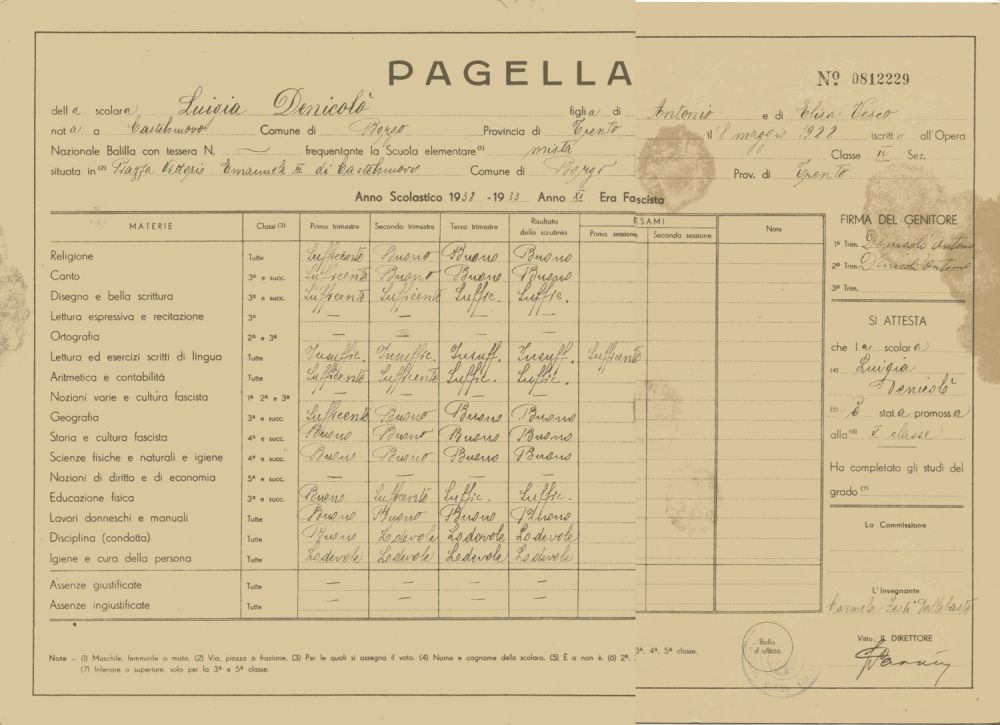 PAGELLA
Nº 0812229
della scolara Luigia Denicolò figlia di Antonio e di Elisa Vesco
nata a Castelnuovo Comune di Borgo Provincia di Trento il 8 maggio 1922 iscritt all'Opera
Nazionale Balilla con tessera N. frequentante la Scuola elementare (1) mista Classe IV Sez.
situata in (2) Piazza Vittorio Emanuele III di Castelnuovo Comune di Borgo Prov. di Trento
Anno Scolastico 1932 - 1933 Anno XI Era Fascista
MATERIE Classi (3) Primo trimestre Secondo trimestre Terzo trimestre Risultato dello scrutinio ESAMI Prima sessione Seconda sessione Note
Religione Tutte Sufficente Buono Buono Buono
Canto 3ª e succ. Sufficente Buono Buono Buono
Disegno e bella scrittura 3ª e succ. Sufficente Sufficente Suffic. Suffic.
Lettura espressiva e recitazione 3ª — — — —
Ortografia 2ª e 3ª — — — —
Lettura ed esercizi scritti di lingua Tutte Insuffic. Insuffic. Insuff. Insuff. Sufficente
Aritmetica e contabilità Tutte Sufficente Sufficente Suffic. Suffic.
Nozioni varie e cultura fascista 1ª 2ª e 3ª
Geografia 3ª e succ. Sufficente Buono Buono Buono
Storia e cultura fascista 4ª e succ. Buono Buono Buono Buono
Scienze fisiche e naturali e igiene 4ª e succ. Buono Buono Buono Buono
Nozioni di diritto e di economia 5ª e succ. — — — —
Educazione fisica 3ª e succ. Buono Sufficente Suffic. Suffic.
Lavori donneschi e manuali Tutte Buono Buono Buono Buono
Disciplina (condotta) Tutte Buono Lodevole Lodevole Lodevole
Igiene e cura della persona Tutte Lodevole Lodevole Lodevole Lodevole
Assenze giustificate Tutte — — — —
Assenze ingiustificate Tutte — — — —
FIRMA DEL GENITORE
1º Trim. Denicolò Antonio
2º Trim. Denicolò Antonio
3º Trim.
SI ATTESTA
che la scolara
(4) Luigia
Denicolò
(5) è stata promossa
alla (6) V classe
Ha completato gli studi del
grado (7)
La Commissione
L'Insegnante
Carmela
Visto: IL DIRETTORE
Bollo
d'ufficio
Note - (1) Maschile, femminile o mista. (2) Via, piazza o frazione. (3) Per le quali si assegna il voto. (4) Nome e cognome dello scolaro. (5) È o non è. (6) 2ª, 3ª, 4ª, 5ª classe.
(7) Inferiore o superiore, solo per la 3ª e 5ª classe.